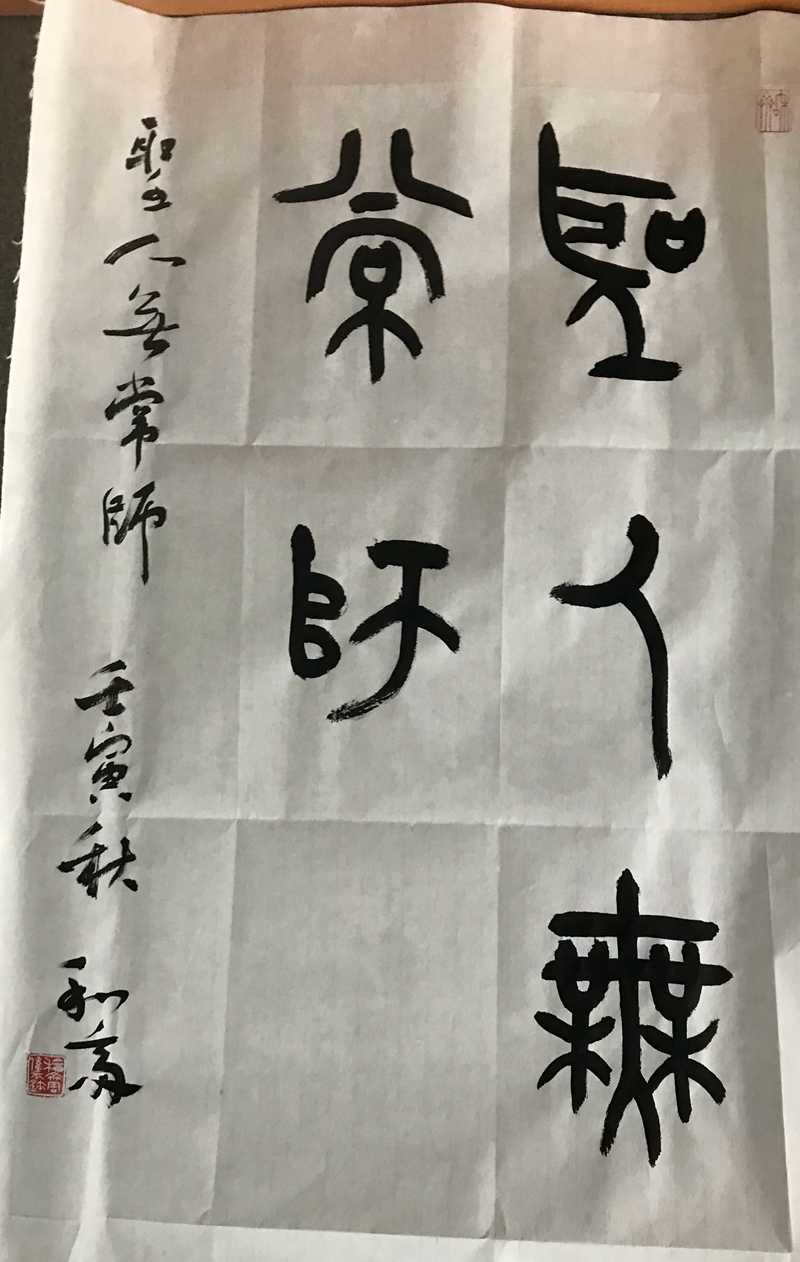 聖人無
常師
聖人無常師 壬寅秋 和